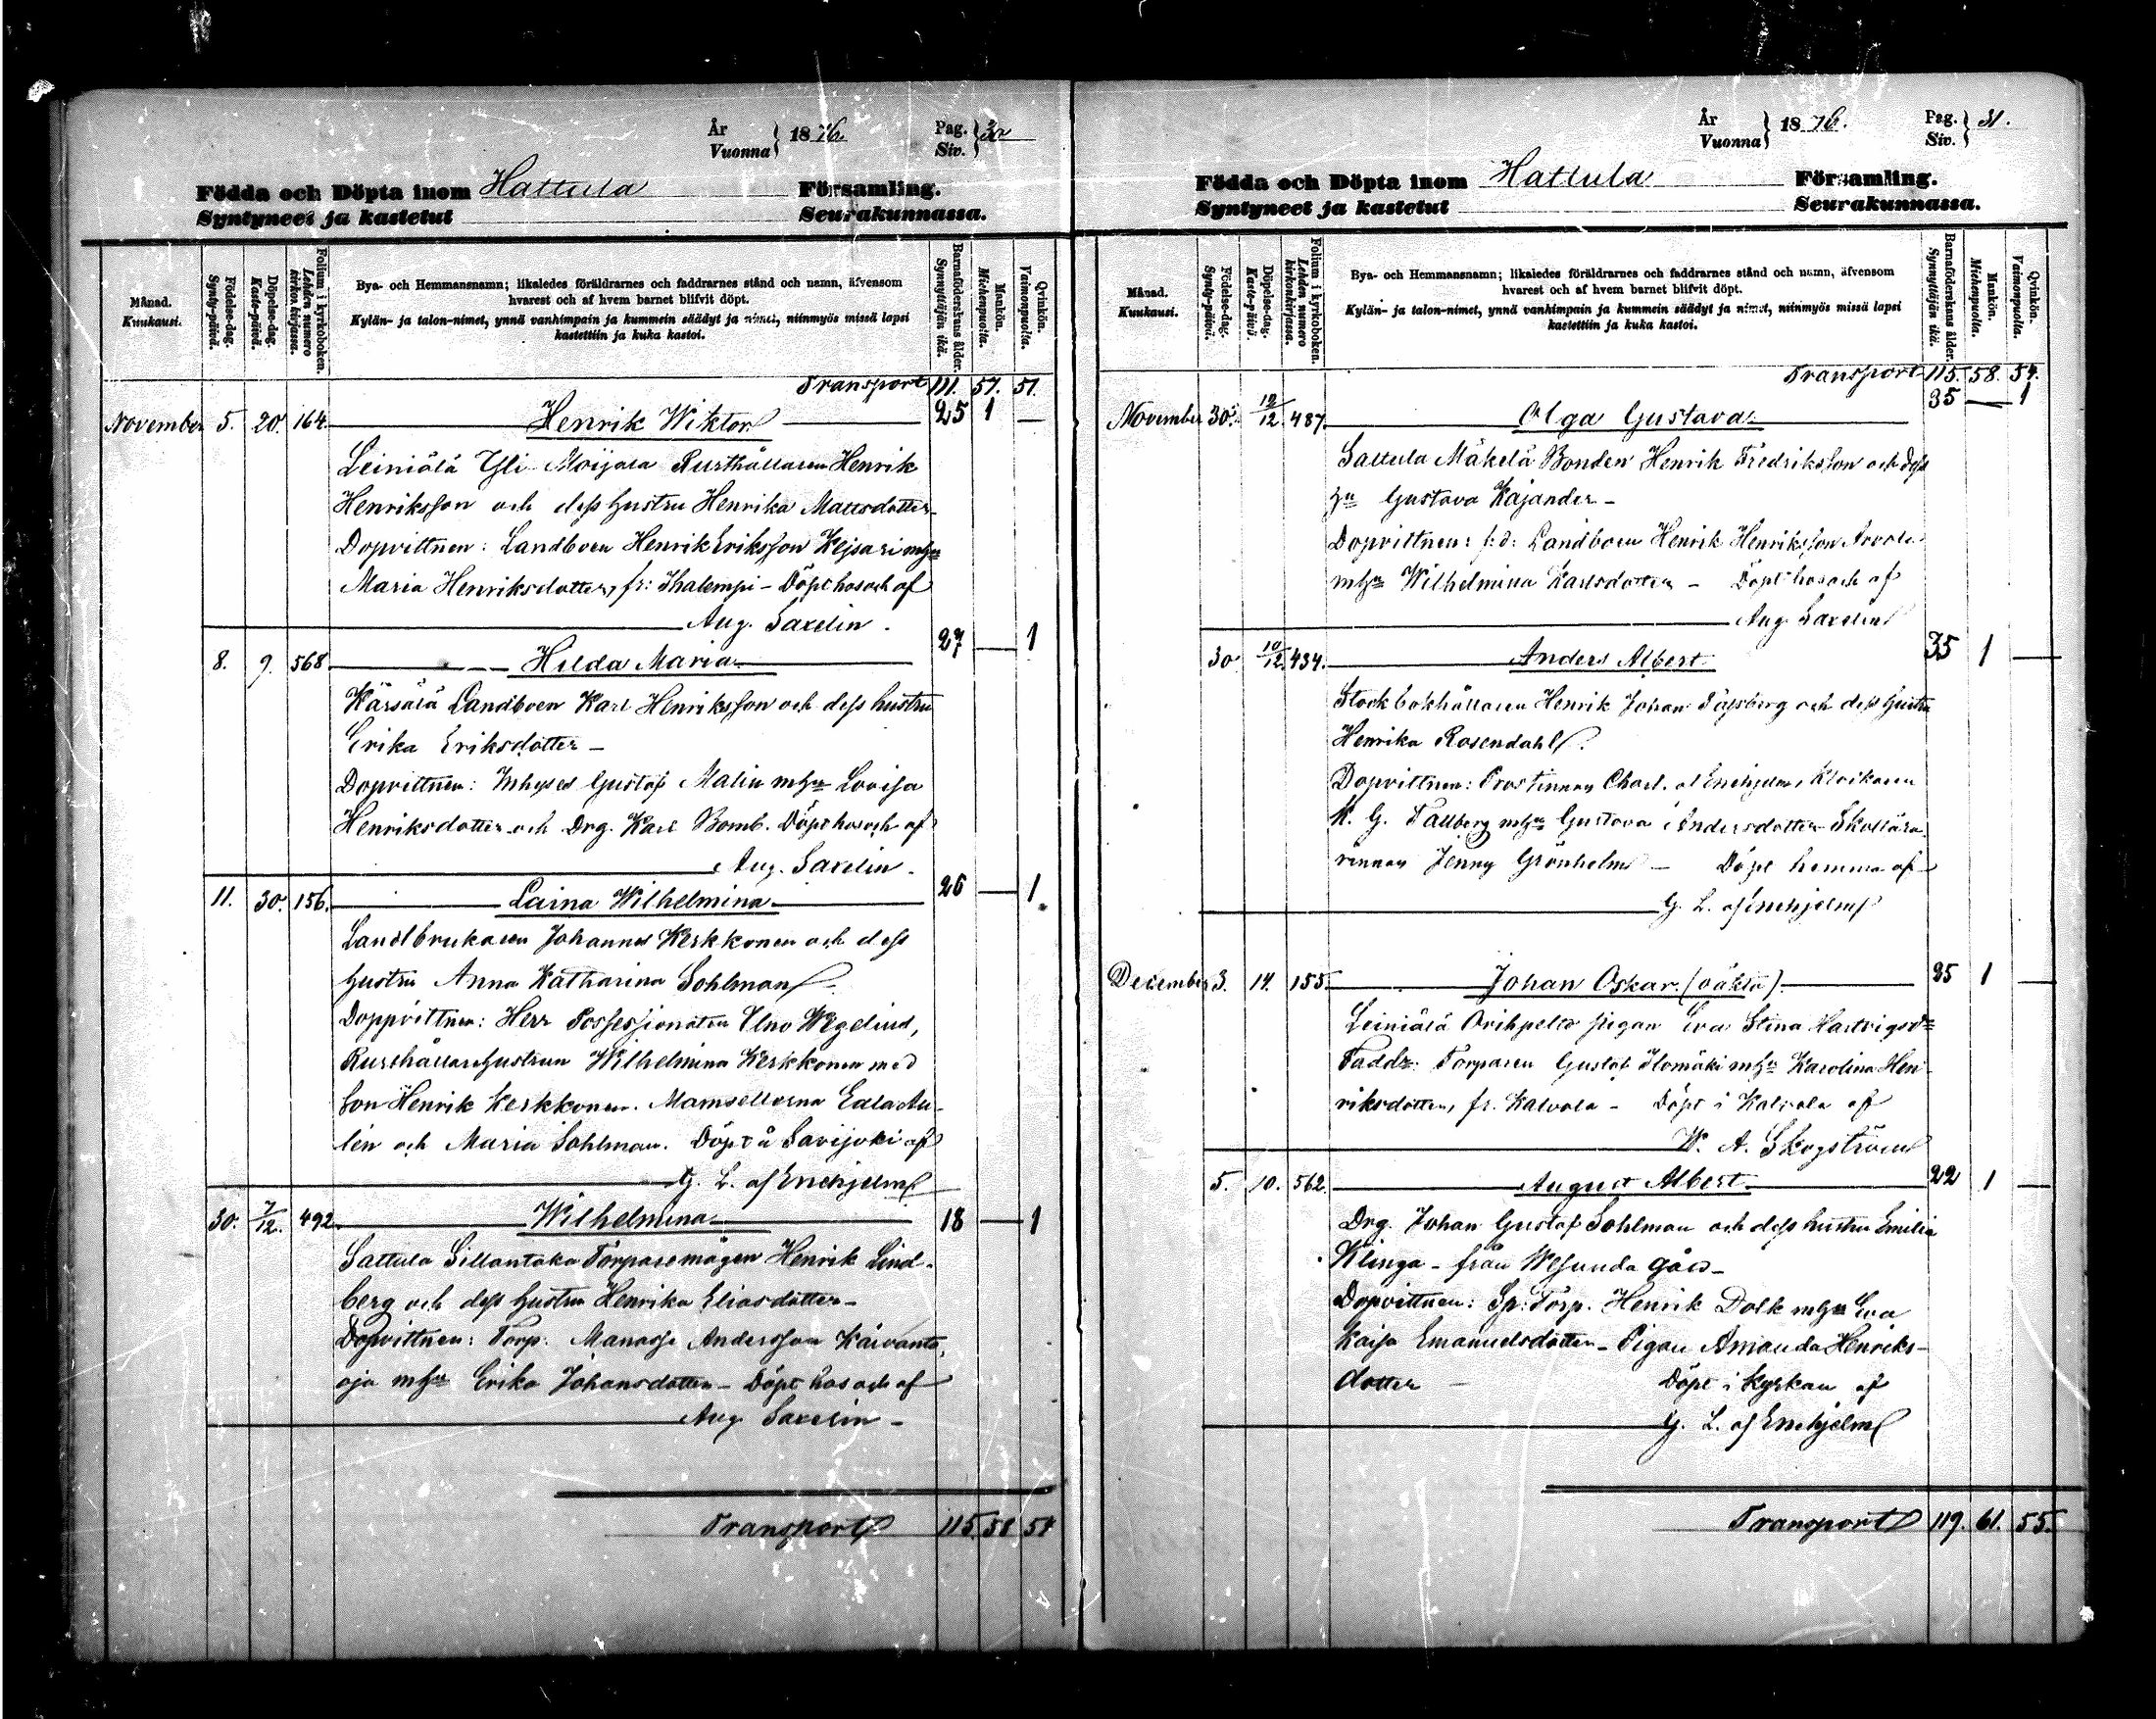 År
Vuonna } 1876
Pag.
Siv. }
Födda och Döpta inom Hattula Församling.
Syntyneet ja kastetut Seurakunnassa.
Månad.
Kuukausi.
Födelse-dag.
Synty-päivä.
Döpelse-dag.
Kaste-päivä.
Folium i kyrkoboken.
Lehden numero
kirkon kirjassa.
Bya- och Hemmansnamn; likaledes föräldrarnes och faddrarnes stånd och namn, äfvensom
hvarest och af hvem barnet blifvit döpt.
Kylän- ja talon-nimet, ynnä vanhimpain ja kummein säädyt ja nimet, niinmyös missä lapsi
kastettiin ja kuka kastoi.
Barnaföderskans ålder.
Synnyttäjän ikä.
Mankön.
Miehenpuolta.
Qvinkön.
Vaimonpuolta.
Transport 111. 57. 51.
November 5. 20. 164. Henrik Wiktor 25 1 —
Leiniälä Yli Moijala Rusthållaren Henrik
Henriksson och dess hustru Henrika Mattsdotter
Dopvittnen: Landboen Henrik Eriksson Kejsari mhu
Maria Henriksdotter, fr: Ihalempi – Döpt hos och af
Aug. Saxelin.
8. 9. 568 Hilda Maria 27 — 1
Kärsälä Landboen Karl Henriksson och dess hustru
Erika Eriksdotter –
Dopvittnen: Inhyses Gustaf Malin mhu Lovisa
Henriksdotter och Drg. Karl Bomb. Döpt hos och af
Aug. Saxelin.
11. 30. 156. Laina Wilhelmina 26 — 1
Landbrukaren Johannes Kerkkonen och dess
hustru Anna Katharina Sohlman
Doppvittnen: Herr Possessionaten Uno Wegelius,
Rusthållarehustrun Wilhelmina Kerkkonen med
son Henrik Kerkkonen. Mamsellerna Edla Au-
lén och Maria Sohlman. Döpt å Savijoki af
G. L. af Enehjelm
30. 7/12. 492. Wilhelmina 18 — 1
Sattula Sillantaka Torparemågen Henrik Lind-
berg och dess hustru Henrika Eliasdotter –
Dopvittnen: Torp. Manasse Andersson Kaivanto
oja mhu Erika Johansdotter – Döpt hos och af
Aug Saxelin –
Transport 115 58
År
Vuonna } 1876.
Pag.
Siv. } 31.
Födda och Döpta inom Hattula Församling.
Syntyneet ja kastetut Seurakunnassa.
Månad.
Kuukausi.
Födelse-dag.
Synty-päivä.
Döpelse-dag.
Kaste-päivä.
Folium i kyrkoboken.
Lehden numero
kirkonkirjassa.
Bya- och Hemmansnamn; likaledes föräldrarnes och faddrarnes stånd och namn, äfvensom
hvarest och af hvem barnet blifvit döpt.
Kylän- ja talon-nimet, ynnä vanhimpain ja kummein säädyt ja nimet, niinmyös missä lapsi
kastettiin ja kuka kastoi.
Barnaföderskans ålder.
Synnyttäjän ikä.
Mankön.
Miehenpuolta.
Qvinkön.
Vaimonpuolta.
Transport 115. 58. 54.
November 30. 10/12. 487. Olga Gustava 35 — 1
Sattula Mäkelä Bonden Henrik Fredriksson och dess
hu Gustava Kajander –
Dopvittnen: f.d. Landboen Henrik Henriksson Arvola
mhu Wilhelmina Karlsdotter – Döpt hos och af
Aug Saxelin
30. 10/12. 434. Anders Albert 35 1 —
Stockbokhållaren Henrik Johan och dess hustru
Henrika Rosendahl.
Dopvittnen: Prostinnan Charl. af Enehjelm, Klockaren
K. G. Tallberg mhu Gustava Andersdotter Skollära
rinnan Jenny Grönholm – Döpt hemma af
G. L. af Enehjelm
December 3. 14. 155. Johan Oskar. (oäkta) 25 1
Leiniälä Orihpelto pigan Eva Stina Hartvigsdr
Faddr: Torparen Gustaf Ilomäki mhu Karolina Hen-
riksdotter, fr. Kalvola – Döpt i Kalvola af
W. A. Skogström
5. 10. 562. August Albert 22 1 —
Drg. Johan Gustaf Sohlman och dess hustru Emilia
Klinga – från Wesunda gård –
Dopvittnen: Sp: Torp. Henrik Dolk mhu Eva
Kaisa Emanuelsdotter – Pigan Amanda Henriks-
dotter – Döpt i kyrkan af
G. L. af Enehjelm
Transport 119. 61. 55.